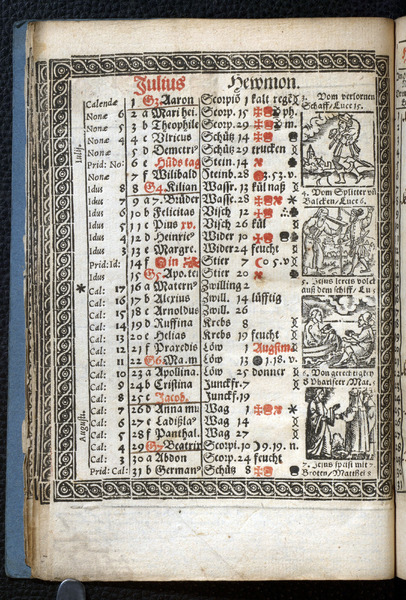 Julius Hewmon.
Calendæ 1 G Aaron Scorpiō 1 kalt regē
Nonæ 6 2 a Mari hei. Scorp. 15 ph.
Nonæ 5 3 b Theophile Scorp. 29 m.
Nonæ 4 4 c Ulricus Schütz 14
Nonæ 5 d Demetri Schütz 29 trucken
Prid: No: 6 Hüds tag Stein. 14
7 f Wilibald Steinb. 28 3. 53. v.
Idus 8 8 G Kilian Wassr. 13 kül naß
Idus 7 9 a 7. Brüder Wasse. 28
Idus 6 10 b Felicitas Visch 12
Idus 5 11 c Pius xv. Visch 26 kül
Idus 4 12 d Heinric Wider 10
Idus 3 13 e Margre. Wider 24 feucht
Prid: Id: 14 f in Stier 6 5. v.
Idus 15 G Apo. tei Stier 20
Cal: 17 16 a Matern Zwilling 2
Cal: 16 17 b Alexius Zwill. 14 lüfftig
Cal: 15 18 c Arnoldus Zwill. 26
Cal: 14 19 d Ruffina Krebs 8
Cal: 13 20 e Helias Krebs 19 feucht
Cal: 12 21 f Praxedis Löw 1 Augstma
Cal: 11 22 G Ma. m Löw 13 1. 18. v.
Cal: 10 23 a Apollina. Löw 25 donner
Cal: 9 24 b Cristina Junckfr. 7
Cal: 8 25 c Jacob. Junckf. 19
Cal: 7 26 d Anna mu Wag 1
Cal: 6 27 e Ladißla Wag 14
Cal: 5 28 f Panthal. Wag 27
Cal: 4 29 G Beatrix Scorpi. 10 9. 19. n.
Cal: 3 30 a Abdon Scorp. 24 feucht
Prid: Cal: 31 b German Schütz 8
Julij.
Augusti.
3. Vom verlornen
Schaff, Luce 15.
4. Vom Splitter vn
Balcken, Luce 6.
5. Jesus leret das volck
auß dem schiff, Lu 5
6. Von gerechtigkey
d Phariseer, Mat. 5
7. Jesus speist mit 7.
Broten, Matthei 8